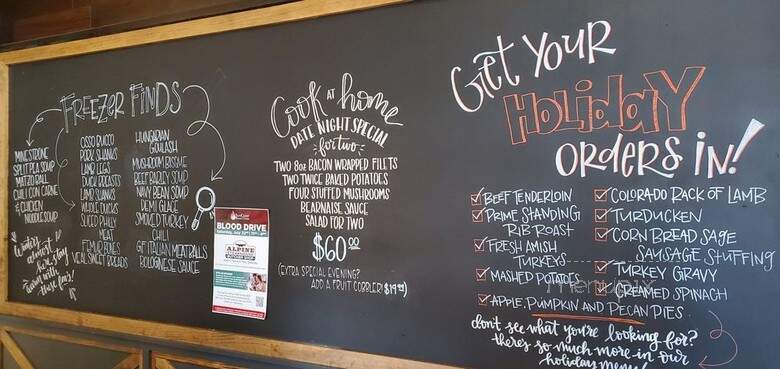 FREEZER FINDS
MINESTRONE
SPLIT PEA SOUP
MATZO BALL
CHILI CON CARNE
& CHICKEN
NOODLE SOUP
Winter's
almost
here, stay
warm with
these faves!
OSSO BUCCO
PORK SHANKS
LAMB LEGS
DUCK BREASTS
LAMB SHANKS
WHOLE DUCKS
SLICED PHILLY
MEAT
FEMUR BONES
VEAL SWEET BREADS
HUNGARIAN
GOULASH
MUSHROOM BISQUE
BEEF BARLEY SOUP
NAVY BEAN SOUP
DEMI GLACE
SMOKED TURKEY
CHILI
GF ITALIAN MEATBALLS
BOLOGNESE SAUCE
BLOOD DRIVE
ALPINE
BUTCHER SHOP
Cook AT home
DATE NIGHT SPECIAL
for two
TWO 8oz BACON WRAPPED FILETS
TWO TWICE BAKED POTATOES
FOUR STUFFED MUSHROOMS
BEARNAISE SAUCE
SALAD FOR TWO
$60.00
(EXTRA SPECIAL EVENING?
ADD A FRUIT COBBLER! $14.99)
GET YOUR
HOLIDAY
ORDERS IN!
BEEF TENDERLOIN
PRIME STANDING
RIB ROAST
FRESH AMISH
TURKEYS
MASHED POTATOES
APPLE, PUMPKIN AND PECAN PIES
COLORADO RACK OF LAMB
TURDUCKEN
CORN BREAD SAGE
SAUSAGE STUFFING
TURKEY GRAVY
CREAMED SPINACH
don't see what you're looking for?
there's so much more in our
holiday menu!